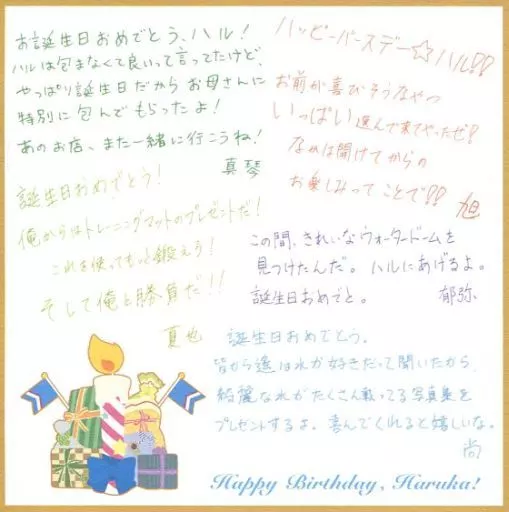 お誕生日おめでとう、ハル!
ハルは包まなくて良いって言ってたけど、
やっぱり誕生日だからお母さんに
特別に包んでもらったよ!
あのお店、また一緒に行こうね!
真琴
ハッピーバースデー☆ハル!!
お前が喜びそうなやつ
いっぱい選んで来てやったぜ!
なかは開けてからの
お楽しみってことで!!
旭
誕生日おめでとう!
俺からはトレーニングマットのプレゼントだ!
これを使ってもっと鍛えろ!
そして俺と勝負だ!!
真也
この間、きれいなウォータードームを
見つけたんだ。ハルにあげるよ。
誕生日おめでと。
郁弥
誕生日おめでとう。
皆から遙は水が好きだって聞いたから、
綺麗な水がたくさん載ってる写真集を
プレゼントするよ。喜んでくれると嬉しいな。
尚
Happy Birthday, Haruka!